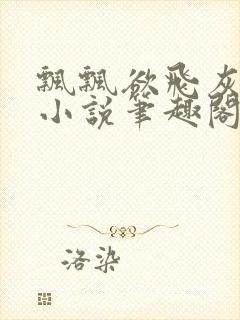 飄飄欲飛灰
小說筆趣閣
洛染